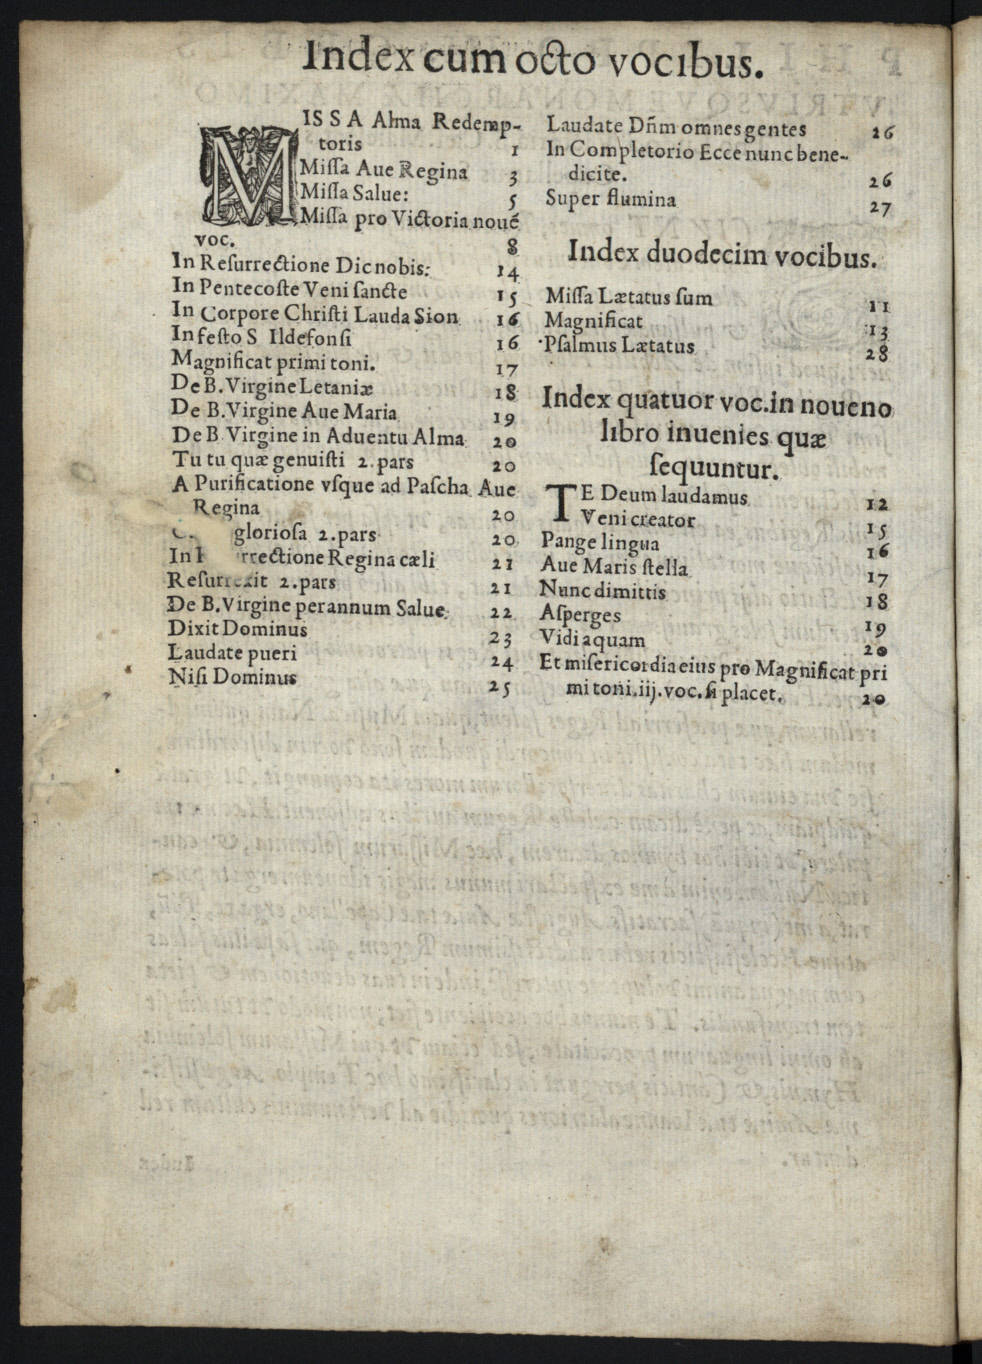 Index cum octo vocibus.
MISSA Alma Redemp-
toris 1
Missa Aue Regina 3
Missa Salue: 5
Missa pro Victoria noué
voc. 8
In Resurrectione Dic nobis: 14
In Pentecoste Veni sancte 15
In Corpore Christi Lauda Sion 16
In festo S Ildefonsi 16
Magnificat primi toni. 17
De B. Virgine Letaniæ 18
De B. Virgine Aue Maria 19
De B. Virgine in Aduentu Alma 20
Tu tu quæ genuisti 2. pars 20
A Purificatione vsque ad Pascha Aue
Regina 20
gloriosa 2. pars 20
In rrectione Regina cæli 21
Resurrexit 2. pars 21
De B. Virgine per annum Salue 22
Dixit Dominus 23
Laudate pueri 24
Nisi Dominus 25
Laudate Dñm omnes gentes 26
In Completorio Ecce nunc bene-
dicite. 26
Super flumina 27
Index duodecim vocibus.
Missa Lætatus sum 11
Magnificat 13
Psalmus Lætatus 28
Index quatuor voc. in noueno
libro inuenies quæ
sequuntur.
TE Deum laudamus 12
Veni creator 15
Pange lingua 16
Aue Maris stella 17
Nunc dimittis 18
Asperges 19
Vidi aquam 20
Et misericordia eius pro Magnificat pri
mi toni. iij. voc. si placet. 20